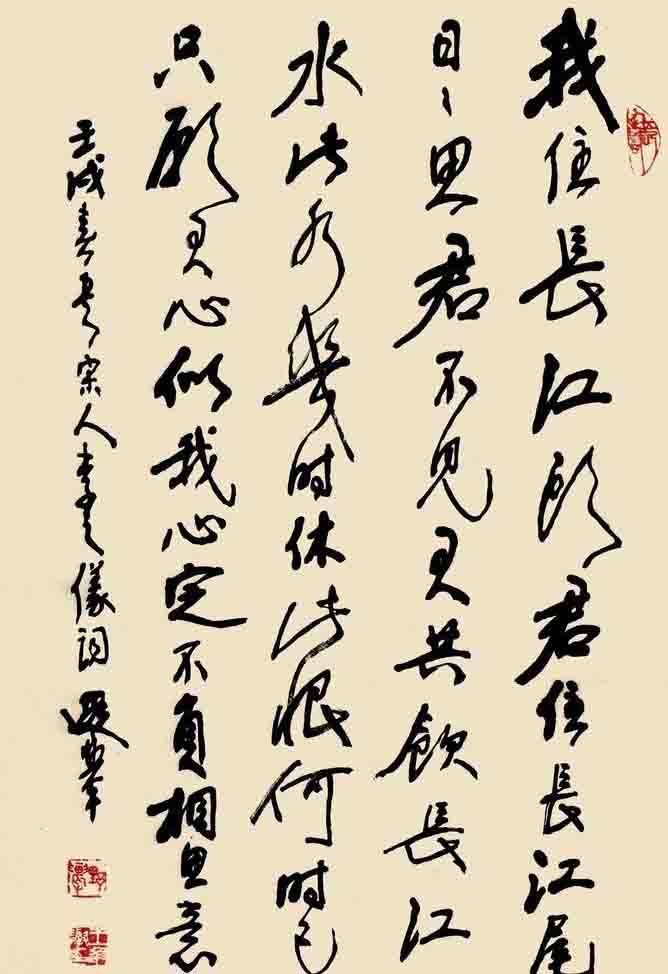 我住長江頭君住長江尾
日〻思君不見君共飲長江
水此水幾時休此恨何時已
只願君心似我心定不負相思意
壬戌春宋人李之儀詞遐舉